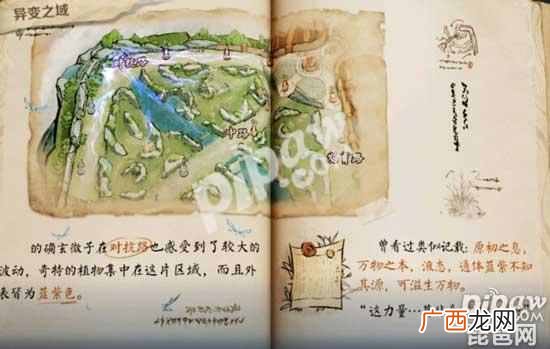 异变之域
中路
发育路
pipaw
.com
的确玄微子在对抗路也感受到了较大的
波动，奇特的植物集中在这片区域，而且外
表皆为蓝紫色。
曾看过类似记载：原初之息，
万物之本，液态，通体蓝紫不知
其源，可滋生万物。
“这力量…
pipaw
琵琶网
广西龙网